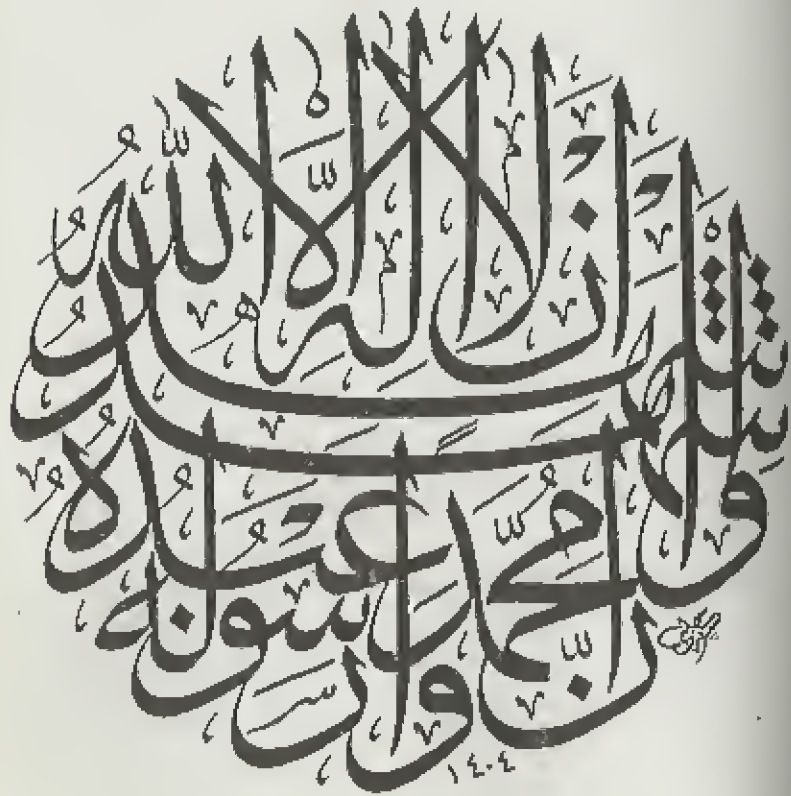 أَشْهَدُ أَنْ لَا إِلٰهَ إِلَّا اللّٰهُ
وَأَشْهَدُ أَنَّ مُحَمَّدًا عَبْدُهُ وَرَسُولُهُ
١٤٠٤